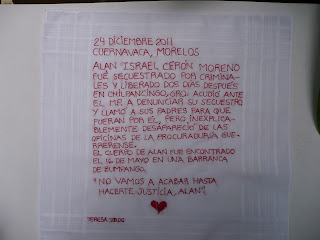 24 DICIEMBRE 2011
CUERNAVACA, MORELOS
ALAN ISRAEL CERÓN MORENO
FUÉ SECUESTRADO POR CRIMINA-
LES Y LIBERADO DOS DÍAS DESPUÉS
EN CHILPANCINGO, GRO. ACUDIÓ ANTE
EL M.P. A DENUNCIAR SU SECUESTRO
Y LLAMÓ A SUS PADRES PARA QUE
FUERAN POR EL, PERO INEXPLICA-
BLEMENTE DESAPARECIÓ DE LAS
OFICINAS DE LA PROCURADURÍA GUE-
RRERENSE.
EL CUERPO DE ALAN FUE ENCONTRADO
EL 16 DE MAYO EN UNA BARRANCA
DE ZUMPANGO.
"NO VAMOS A ACABAR HASTA
HACERTE JUSTICIA, ALAN".
TERESA